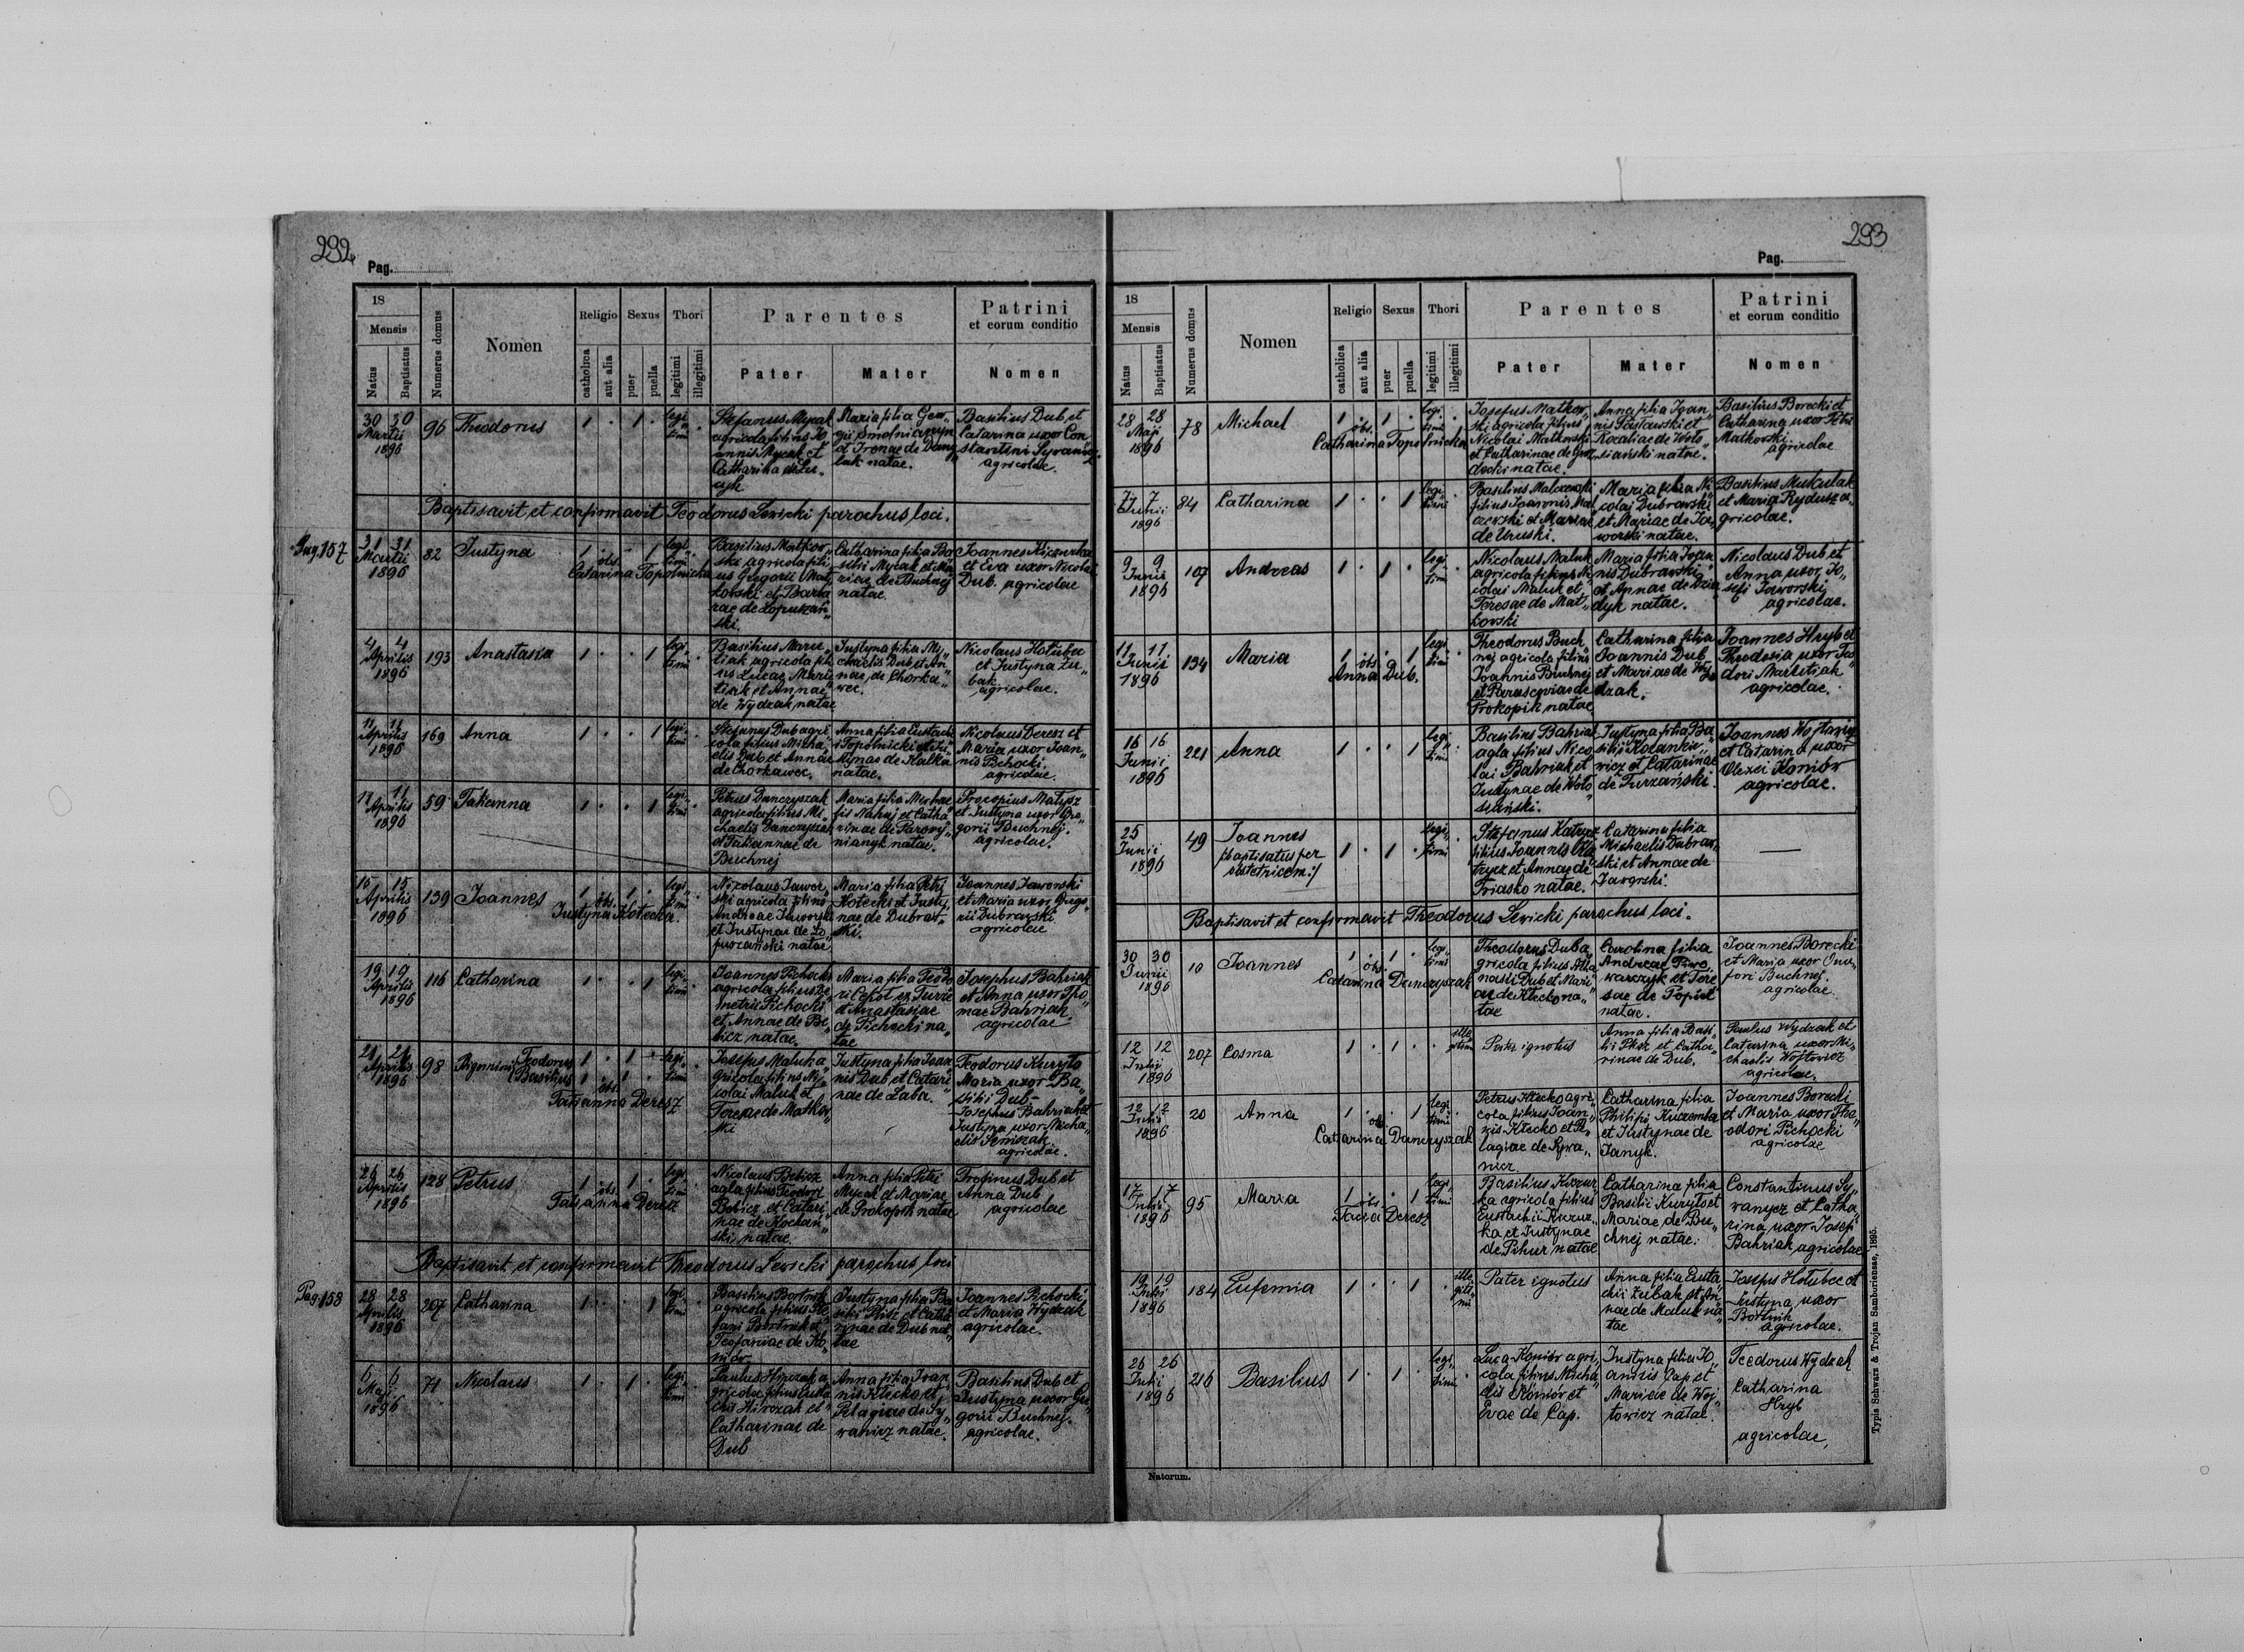 292
Pag.
18
Mensis
Natus
Baptisatus
Numerus domus
Nomen
Religio
catholica
aut alia
Sexus
puer
puella
Thori
legitimi
illegitimi
Parentes
Pater
Mater
Patrini
et eorum conditio
Nomen
30 30
Martii
1896
96
Theodorus
1 . 1 .
legi„
timi
Stefanus Mycak
agricola filius Jo„
annis Mycak et
Catharina de Lu„
cyk
Maria filia Geor„
gii Smolnicanyn
et Irenae de Dany„
luk natae.
Basilius Dub et
Catarina uxor Con
stantini Sywanicz
agricolae.
Baptisavit et confirmavit Teodorus Lewicki parochus loci.
Pag. 157
31 31
Martii
1896
82
Justyna
1 . . 1
legi
timi
obs.
Catarina Topolnicka
Basilius Matkow„
ski agricola fili„
us Gregorii Mat„
kowski et Barba
rae de Lopuszań„
ski.
Catharina filia Ba
silii Mycak et Ma„
riae de Buchnej
natae.
Joannes Kiczurka
et Eva uxor Nicolai
Dub. agricolae
4 4
Aprilis
1896
193
Anastasia
1 . . 1
legi„
timi
Basilius Maru„
tiak agricola fili
us Lucae Maru
tiak et Annae
de Wydzak natae
Justyna filia Mi„
chaelis Dub et An„
nae de Chorka„
wec.
Nicolaus Hołubec
et Justyna Żu
bak
agricolae.
11 11
Aprilis
1896
169
Anna
1 . . 1
legi„
timi
Stefanus Dub agri
cola filius Micha„
elis Dub et Annae
de Chorkawec.
Anna filia Eustachi
i Topolnicki et Ju„
stynae de Kalka
natae.
Nicolaus Deresz et
Maria uxor Joan„
nis Pichocki.
agricolae.
11 11
Aprilis
1896
59
Tatianna
1 . . 1
legi„
timi
Petrus Danczyszak
agricola filius Mi„
chaelis Danczyszak
et Tatiannae de
Buchnej
Maria filia Michae
lis Nahuj et Catha
rinae de
natae.
Procopius Matysz
et Justyna uxor Gre„
gorii Buchnej.
agricolae.
15 15
Aprilis
1896
139
Joannes
1 . 1 .
legi
timi
obs.
Justyna Kotecka.
Nicolaus Jawor„
ski agricola filius
Andreae Jaworski
et Justynae de Lo„
puszański natae
Maria filia Petri
Kotecki et Justy„
nae de Dubraw„
ski.
Joannes Jaworski
et Maria uxor Grego„
rii Dubrawski
agricolae
19 19
Aprilis
1896
116
Catharina
1 . . 1
legi„
timi
Joannes Pichocki
agricola filius De„
metrii Pichocki
et Annae de Be„
bicz natae.
Maria filia Teodo
ri Cepot ex Turze
et Anastasiae
de Pichocki na„
tae
Josephus Bahriak
et Anna uxor Tho„
mae Bahriak.
agricolae
21 21
Aprilis
1896
98
Bigemini Teodorus
Basilius
1 . 1 .
1 . 1 .
legi„
timi
obs.
Tatianna Deresz
Josefus Maluk a„
gricola filius Ni„
colai Maluk et
Teresae de Matkow„
ski
Justyna filia Joan„
nis Dub et Catari„
nae de Łaba.
Teodorus Kuryto
Maria uxor Ba„
silii Dub—
Josephus Bahriak et
Justyna uxor Micha„
elis Semszak.
agricolae.
26 26
Aprilis
1896
128
Petrus
1 . 1 .
legi„
timi
obs.
Tatianna Deresz
Nicolaus Bebicz
agla filius Teodori
Bebicz et Catari„
nae de Kochań„
ski natae.
Anna filia Petri
Mycak et Mariae
de Prokopik natae
Trofinus Dub et
Anna Dub
agricolae
Baptisavit et confirmavit Theodorus Lewicki parochus loci
Pag. 158
28 28
Aprilis
1896
207
Catharina
1 . . 1
legi„
timi
Basilius Bortnik
agricola filius Ste„
fani Bortnik et
Teofaniae de Ko„
niór
Justyna filia Ba„
silii Phisz et Catha
rinae de Dub na„
tae
Joannes Pichocki
et Maria Wydzak
agricolae.
6 6
Maji
1896
71
Nicolaus
1 . 1 .
legi„
timi
Paulus Hirczak a„
gricola filius Eusta
chii Hirczak et
Catharinae de
Dub
Anna filia Joan„
nis Klecko et
Pelagiae de Sy„
wanicz natae.
Basilius Dub et
Justyna uxor Gre„
gorii Buchnej.
agricolae.
293
Pag.
18
Mensis
Natus
Baptisatus
Numerus domus
Nomen
Religio
catholica
aut alia
Sexus
puer
puella
Thori
legitimi
illegitimi
Parentes
Pater
Mater
Patrini
et eorum conditio
Nomen
28 28
Maji
1896
78
Michael
1 . 1 .
legi„
timi
obs.
Catharina Topolnicka
Josefus Matkow„
ski agricola filius
Nicolai Matkowski
et Catharinae de Gro„
decki natae.
Anna filia Joan„
nis Pastawski et
Rozaliae de Woło„
siański natae.
Basilius Borecki et
Catharina uxor Petri
Matkowski.
agricolae
7 7
Junii
1896
84
Catharina
1 . . 1
legi„
timi
Basilius Malczewski
filius Joannis Mal
czewski et Mariae
de Uruski.
Maria filia Ni„
colai Dubrawski
et Mariae de Ja„
worski natae.
Basilius Mukulak
et Maria Rydusz a„
gricolae.
9 9
Junii
1896
107
Andreas
1 . 1 .
legi„
timi
Nicolaus Maluk
agricola filius Ni„
colai Maluk et
Teresae de Mat„
kowski
Maria filia Joan
nis Dubrawski
et Annae de Dzia
dyk natae.
Nicolaus Dub et
Anna uxor Jo„
sefi Jaworski
agricolae.
11 11
Junii
1896
134
Maria
1 . . 1
legi„
timi
obs.
Anna Dub.
Theodorus Buch
nej agricola filius
Joannis Buchnej
et Parasceviae de
Prokopik natae
Catharina filia
Joannis Dub
et Mariae de Wy„
dzak.
Joannes Hryb et
Theodosia uxor Teo„
dori Marutiak
agricolae.
16 16
Junii
1896
221
Anna
1 . . 1
legi„
timi
Basilius Bahriak
agla filius Nico
lai Bahriak et
Justynae de Woło„
siański.
Justyna filia Ba„
silii Kozankie„
wicz et Catarinae
de Turzański.
Joannes Wojtowicz
et Catarina uxor
Olexei Koniór
agricolae.
25
Junii
1896
49
Joannes
/:baptisatus per
obstetricem:/
1 . 1 .
legi„
timi
Stefanus Katrycz
filius Joannis Ka„
trycz et Annae de
Friasko natae.
Catarina filia
Michaelis Dubraw„
ski et Annae de
Jaworski.
—
Baptisavit et confirmavit Theodorus Lewicki parochus loci.
30 30
Junii
1896
10
Joannes
1 . 1 .
legi„
timi
obs.
Catarina Danczyszak
Theodorus Dub a„
gricola filius Atha
nasii Dub et Mari„
ae de Klecko na„
tae
Carolina filia
Andreae Piwo„
warczyk et Tere
sae de Popiel
natae.
Joannes Borecki
et Maria uxor Onu„
frii Buchnej.
agricolae.
12 12
Julii
1896
207
Cosma
1 . 1 .
ille
gitimi
Pater ignotus
Anna filia Basi„
lii Phisz et Catha„
rinae de Dub.
Paulus Wydzak et
Catarina uxor Mi„
chaelis Wojtowicz
agricolae.
12 12
Julii
1896
20
Anna
1 . . 1
legi„
timi
obs.
Catarina Danczyszak
Petrus Klecko agri„
cola filius Joan„
nis Klecko et Pe„
lagiae de Sywa„
nicz
Catharina filia
Philipi Kuzemka
et Justynae de
Janyk.
Joannes Borecki
et Maria uxor The„
odori Pichocki
agricolae
17 17
Julii
1896
95
Maria
1 . . 1
legi„
timi
obs.
Tacia Deresz
Basilius Kiczur„
ka agricola filius
Eustachii Kiczur„
ka et Justynae
de Pihur natae
Catharina filia
Basilii Kuryto et
Mariae de Bu„
chnej natae.
Constantinus Sy„
wanycz et Catha„
rina uxor Josefi
Bahriak agricolae
19 19
Julii
1896
184
Eufemia
1 . . 1
ille
giti„
mi
Pater ignotus
Anna filia Eusta„
chii Żubak et An„
nae de Maluk na„
tae
Josefus Hołubec et
Justyna uxor
Bortnik
agricolae.
26 26
Julii
1896
216
Basilius
1 . 1 .
legi„
timi
Luca Koniór agri„
cola filius Micha„
elis Koniór et
Evae de Cap.
Justyna filia Jo„
annis Cap et
Mariae de Woj„
towicz natae.
Teodorus Wydzak
Catharina
Hryb
agricolae,
Natorum.
Typis Schwarz & Trojan Samboriensae, 1895.